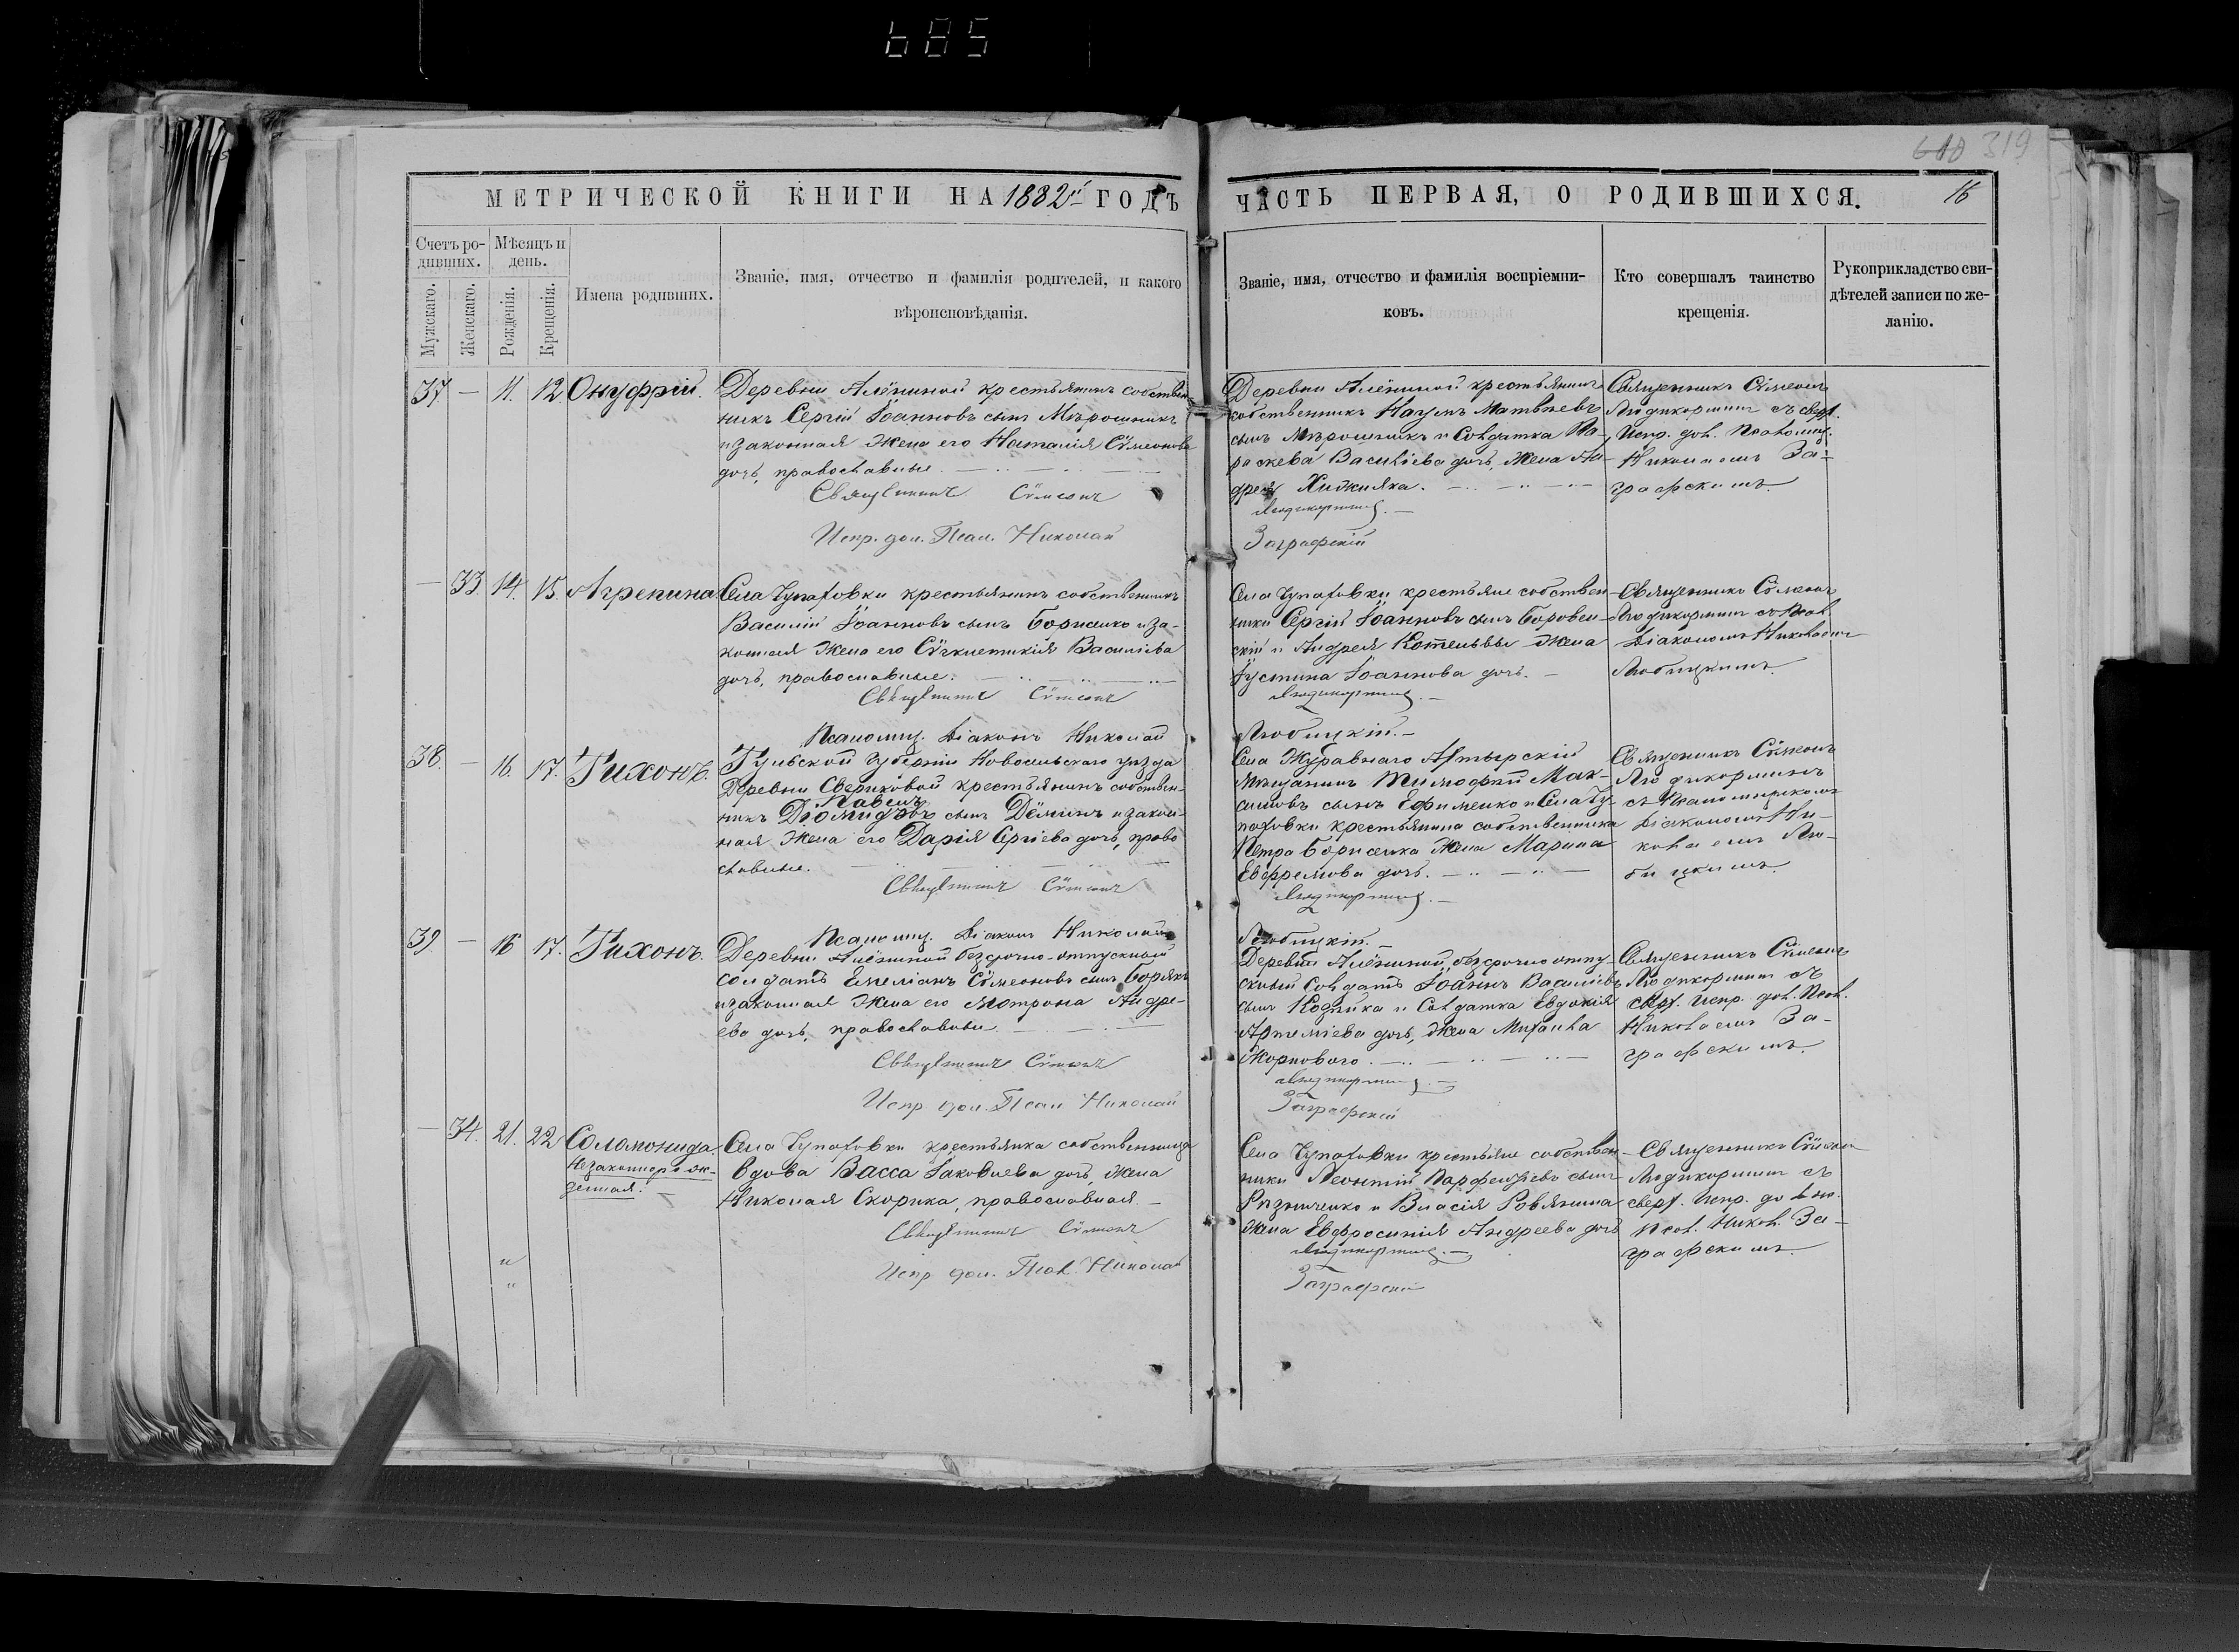 685
618 319
МЕТРИЧЕСКОЙ КНИГИ НА 1882й ГОДЪ
ЧАСТЬ ПЕРВАЯ, О РОДИВШИХСЯ.
16
Счетъ ро-
дивших.
Мѣсяцъ и
день.
Мужскаго.
Женскаго.
Рожденія.
Крещенія.
Имена родивших.
Званіе, имя, отчество и фамилія родителей, и какого
вѣроисповѣданія.
Званіе, имя, отчество и фамилія воспріемни-
ковъ.
Кто совершалъ таинство
крещенія.
Рукоприкладство сви-
дѣтелей записи по же-
ланію.
37. — 11. 12. Онуфрій.
Деревни Алёниной крестьянинъ собствен-
никъ Сергій Іоанновъ сынъ Мѣрошникъ
и законная жена его Наталія Сѵмеонова
дочь, православные.
Священникъ Сѵмеонъ
Испр. дол. Псал. Николай
Деревни Алёниной крестьянинъ
собственникъ Наумъ Матвѣевъ
сынъ Мѣрошникъ и Солдатка Па-
раскева Василіева дочь, жена Ан-
дрея Хижняка.
Людикорминъ.
Заграфскій
Священникъ Сѵмеонъ
Людикорминъ съ сверх.
Испр. дол. Псаломщ.
Николаемъ За-
графскимъ.
— 33. 14. 15. Агрепина
Села Чупаховки крестьянинъ собственникъ
Василій Іоанновъ сынъ Борисенко и за-
конная жена его Сѵгклитикія Василіева
дочь, православные.
Священникъ Сѵмеонъ
Псаломщ. Діаконъ Николай
Села Чупаховки крестьяне собствен-
ники Сергій Іоанновъ сынъ Боровен-
скій и Андрея Котельвы жена
Іустина Іоаннова дочь.
Людикорминъ.
Любицкій.
Священникъ Сѵмеонъ
Людикорминъ съ Псал.
Діакономъ Николаемъ
Любицкимъ.
38. — 16. 17. Тихонъ.
Тульской Губерніи Новосильскаго уѣзда
Деревни Свериковой крестьянинъ собствен-
Павелъ
никъ Діомидовъ сынъ Дёминъ и закон-
ная жена его Дарія Сергіева дочь, право
славные.
Священникъ Сѵмеонъ
Псаломщ. Діаконъ Николай
Села Журавнаго Ахтырскій
мѣщанинъ Тимофей Мак-
симовъ сынъ Ефименко и Села Чу-
паховки крестьянина собственника
Петра Борисенка жена Марина
Евфремова дочь.
Людикорминъ.
Любицкій.
Священникъ Сѵмеонъ
Людикорминъ
съ Псаломщикомъ
Діакономъ Ни-
колаемъ Лю-
бицкимъ.
39. — 16 17. Тихонъ.
Деревни Алёниной безсрочно-отпускной
солдатъ Емеліанъ Сѵмеоновъ сынъ Борякъ
и законная жена его Мотрона Андре-
ева дочь, православные
Священникъ Сѵмеонъ
Испр. дол. Псал Николай
Деревни Алёниной, безсрочно отпу-
скный Солдатъ Іоаннъ Василіевъ
сынъ Коднка и Солдатка Евдокія
Артеміева дочь, жена Михаила
Жорнового.
Людикорминъ.
Заграфскій
Священникъ Сѵмеонъ
Людикорминъ съ
сверх. Испр. дол. Псал.
Николаемъ За-
графскимъ.
— 34. 21. 22 Соломонида
Незаконнорож-
денная.
Села Чупаховки крестьянка собственница
вдова Васса Іаковлева дочь, жена
Николая Скорика, православная.
Священникъ Сѵмеонъ
Испр. дол. Псал. Николай
Села Чупаховки крестьяне собствен-
ники Леонтій Парфеніевъ сынъ
Рязниченко и Власія Ровянина
жена Евфросинія Андреева дочь
Людикорминъ.
Заграфскій
Священникъ Сѵмеонъ
Людикорминъ съ
сверх. Испр. должн.
Псал. Никол. За-
графскимъ.